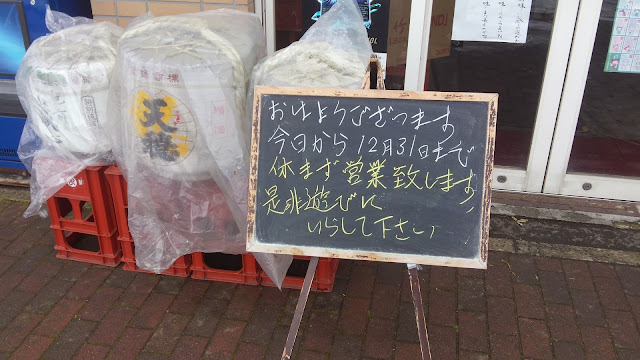 おはようございます
今日から12月31日まで
休まず営業致します
是非遊びに
いらして下さい
天